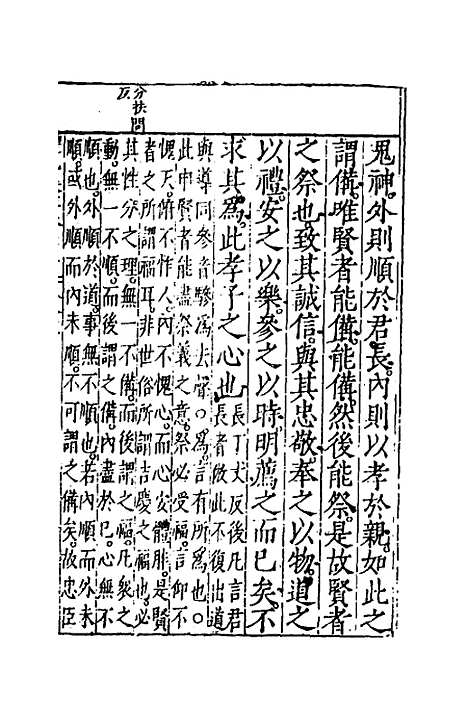 分扶問
反
鬼神外則順於君長內則以孝於親如此之
謂備唯賢者能備能備然後能祭是故賢者
之祭也致其誠信與其忠敬奉之以物道之
以禮安之以樂參之以時明薦之而已矣不
求其為此孝子之心也
長丁丈反後凡言君
長放此不復出道
與導同參音驂為去聲○為言有所為也○
此申賢者能盡祭義之意祭必受福言仰不
愧天俯不怍人內不愧心而心安體胖是賢
者之所謂福耳非世俗所謂吉慶之福也必
其性分之理無一不備而後謂之福凡衆之
動無一不順而後謂之備內盡於已心無不
順也外順於道事無不順也若內順而外未
順或外順而內未順不可謂之備矣故忠臣